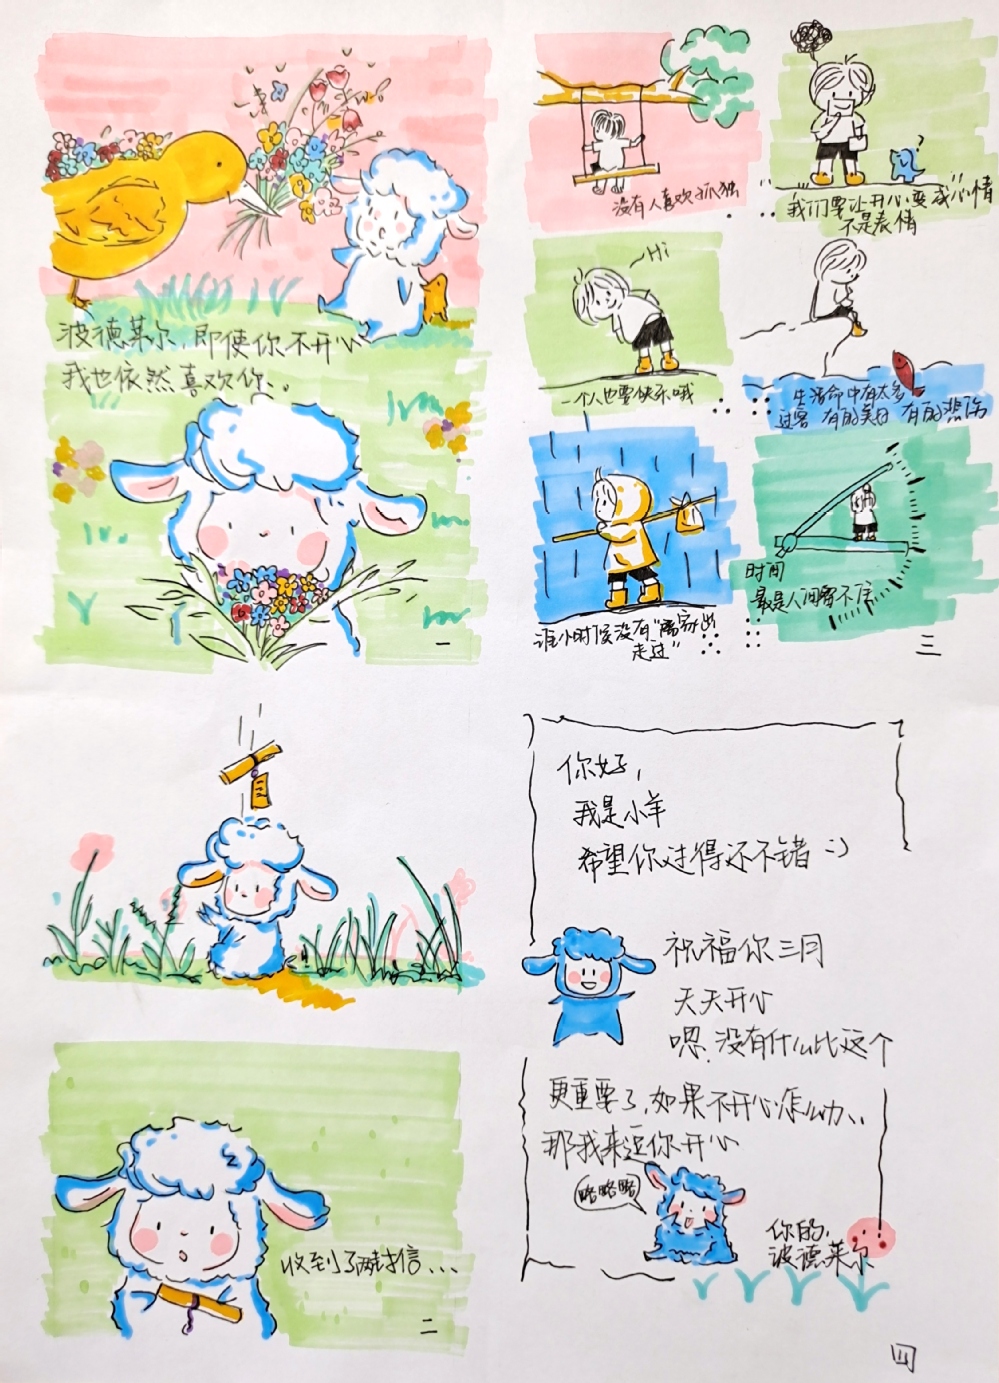 波德莱尔,即使你不开心
我也依然喜欢你..
一
收到了两封信...
二
没有人喜欢孤独
我们要让开心变成"心情"
不是表情
Hi
一个人也要快乐哦
生活命中有太多
过客 有的美好 有的悲伤
谁小时候没有"离家出
走过"
时间
最是人间留不住
三
你好,
我是小羊
希望你过得还不错 :)
祝福你三月
天天开心
嗯,没有什么比这个
更重要了,如果不开心怎么办..
那我来逗你开心
略略略
你的,
波德莱尔
四